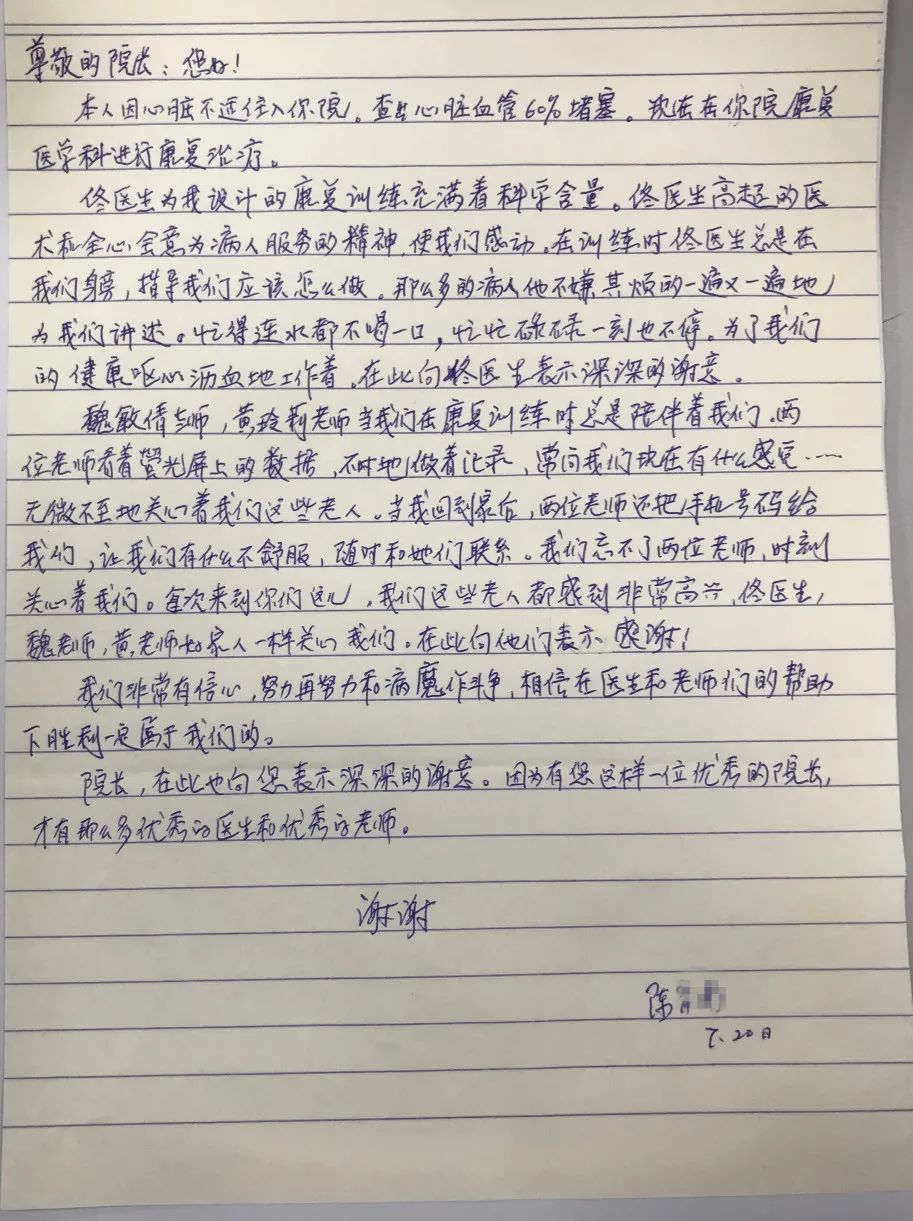 尊敬的院长：您好！
本人因心脏不适住入你院。查出心脏血管60%堵塞。现在在你院康复
医学科进行康复治疗。
佟医生为我设计的康复训练充满着科学含量。佟医生高超的医
术和全心全意为病人服务的精神，使我们感动。在训练时佟医生总是在
我们身旁，指导我们应该怎么做。那么多的病人他不嫌其烦的一遍又一遍地
为我们讲述。忙得连水都不喝一口，忙忙碌碌一刻也不停。为了我们
的健康呕心沥血地工作着。在此向佟医生表示深深的谢意。
魏敏倩老师，黄玲莉老师当我们在康复训练时总是陪伴着我们。两
位老师看着萤光屏上的数据，不时地做着记录，常问我们现在有什么感觉……
无微不至地关心着我们这些老人。当我回到家后，两位老师还把手机号码给
我们，让我们有什么不舒服，随时和她们联系。我们忘不了两位老师，时刻
关心着我们。每次来到你们这儿，我们这些老人都感到非常高兴，佟医生，
魏老师，黄老师如家人一样关心我们。在此向他们表示感谢！
我们非常有信心，努力再努力和病魔作斗争，相信在医生和老师们的帮助
下胜利一定属于我们的。
院长，在此也向您表示深深的谢意。因为有您这样一位优秀的院长，
才有那么多优秀的医生和优秀的老师。
谢谢
陈
7.20日